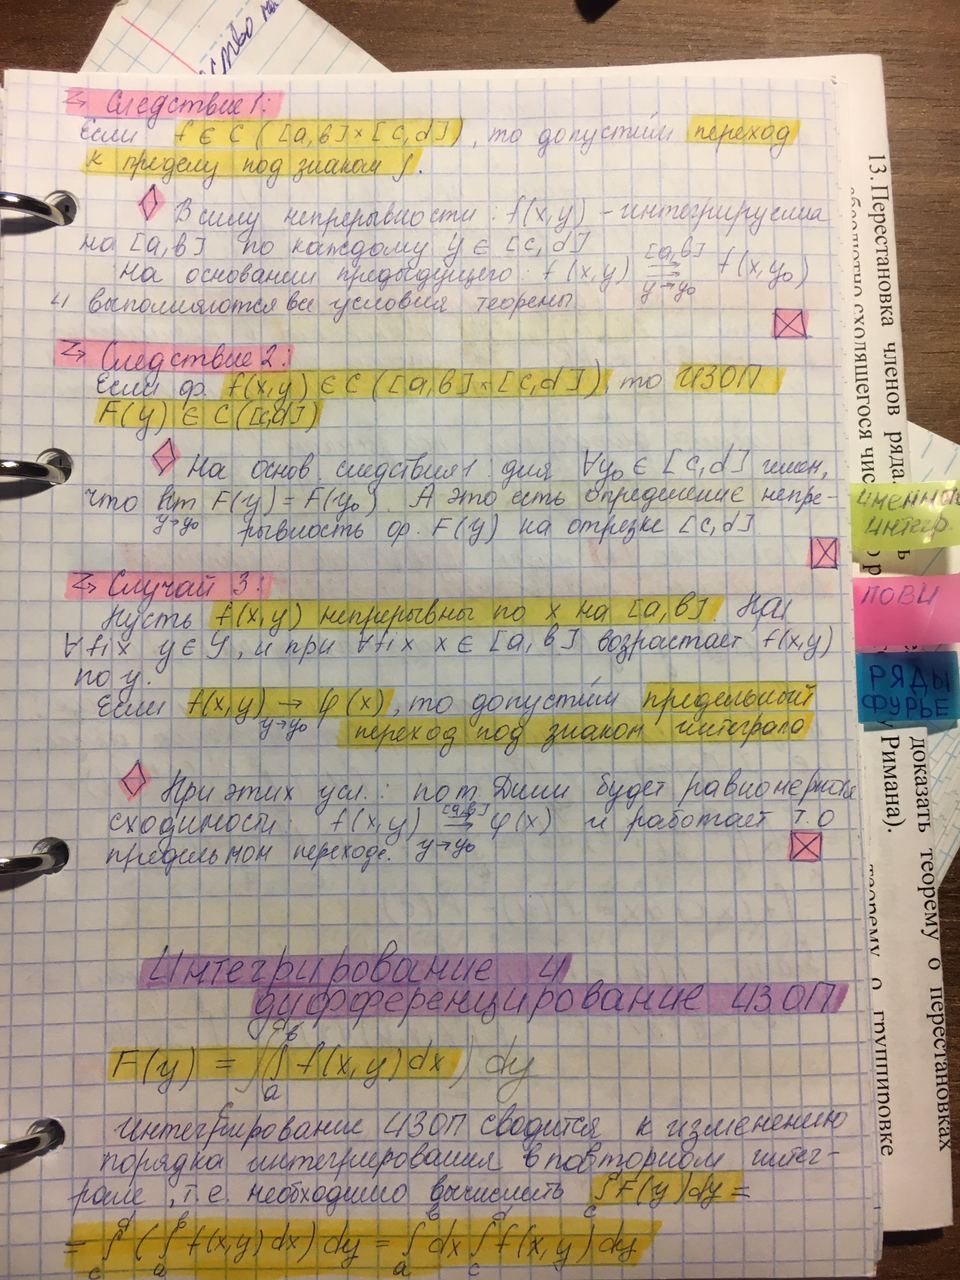 ство
Следствие 1:
Если f ∈ C ([a,b]×[c,d]), то допустим переход
к пределу под знаком ∫.
В силу непрерывности: f(x,y) – интегрируема
на [a,b] по каждому y ∈ [c,d]
На основании предыдущего: f(x,y) [a,b] ⇉ y→y₀ f(x,y₀)
и выполняются все условия теоремы
Следствие 2:
Если ф. f(x,y) ∈ C ([a,b]×[c,d]), то ИЗОП
F(y) ∈ C([c,d])
На основ. следствия 1 для ∀y₀ ∈ [c,d] имеем,
что lim F(y) = F(y₀). А это есть определение непре-
y→y₀ рывность ф. F(y) на отрезке [c,d]
Случай 3:
Пусть f(x,y) непрерывны по x на [a,b]. При
∀fix y ∈ Y, и при ∀fix x ∈ [a,b] возрастает f(x,y)
по y.
Если f(x,y) → φ(x), то допустим предельный
y→y₀ переход под знаком интеграла
При этих усл.: по т. Дини будет равномерная
сходимость: f(x,y) [a,b] ⇉ φ(x) и работает т. о
предельном переходе. y→y₀
Интегрирование и
дифференцирование ИЗОП
F(y) = ∫(∫ₐᵇ f(x,y) dx) dy
Интегрирование ИЗОП сводится к изменению
порядка интегрирования в повторном интег-
рале, т.е. необходимо вычислить ∫F(y)dy =
= ∫ᶜᵈ (∫ₐᵇ f(x,y) dx) dy = ∫ₐᵇ dx ∫ᶜᵈ f(x,y) dy
13. Перестановка членов ряда.
абсолютно сходящегося чис
доказать теорему о перестановках
Римана).
теорему о группировке
интегр.
ПОВИ
РЯДЫ
ФУРЬЕ